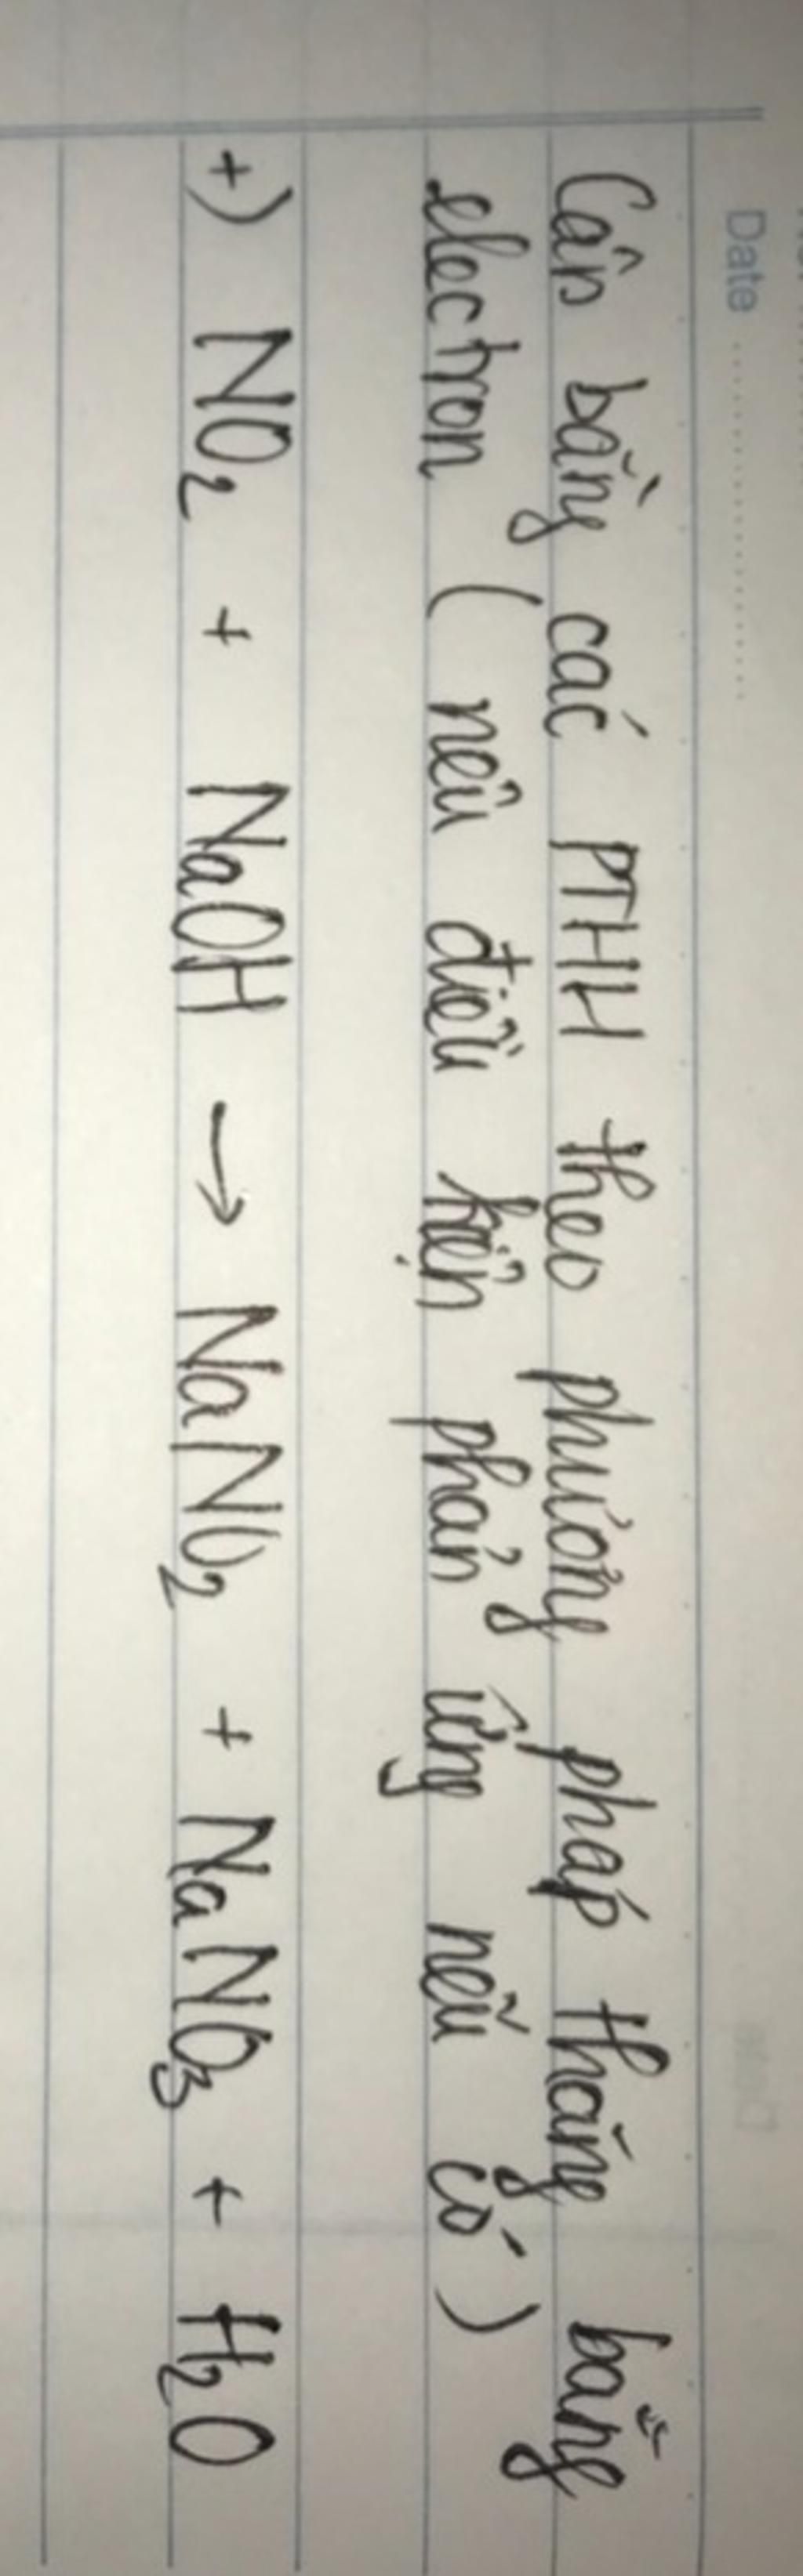 Date
Cân bằng các PTHH theo phương pháp thăng bằng
electron ( nêu điều kiện phản ứng nếu có )
+) NO₂ + NaOH → NaNO₂ + NaNO₃ + H₂O